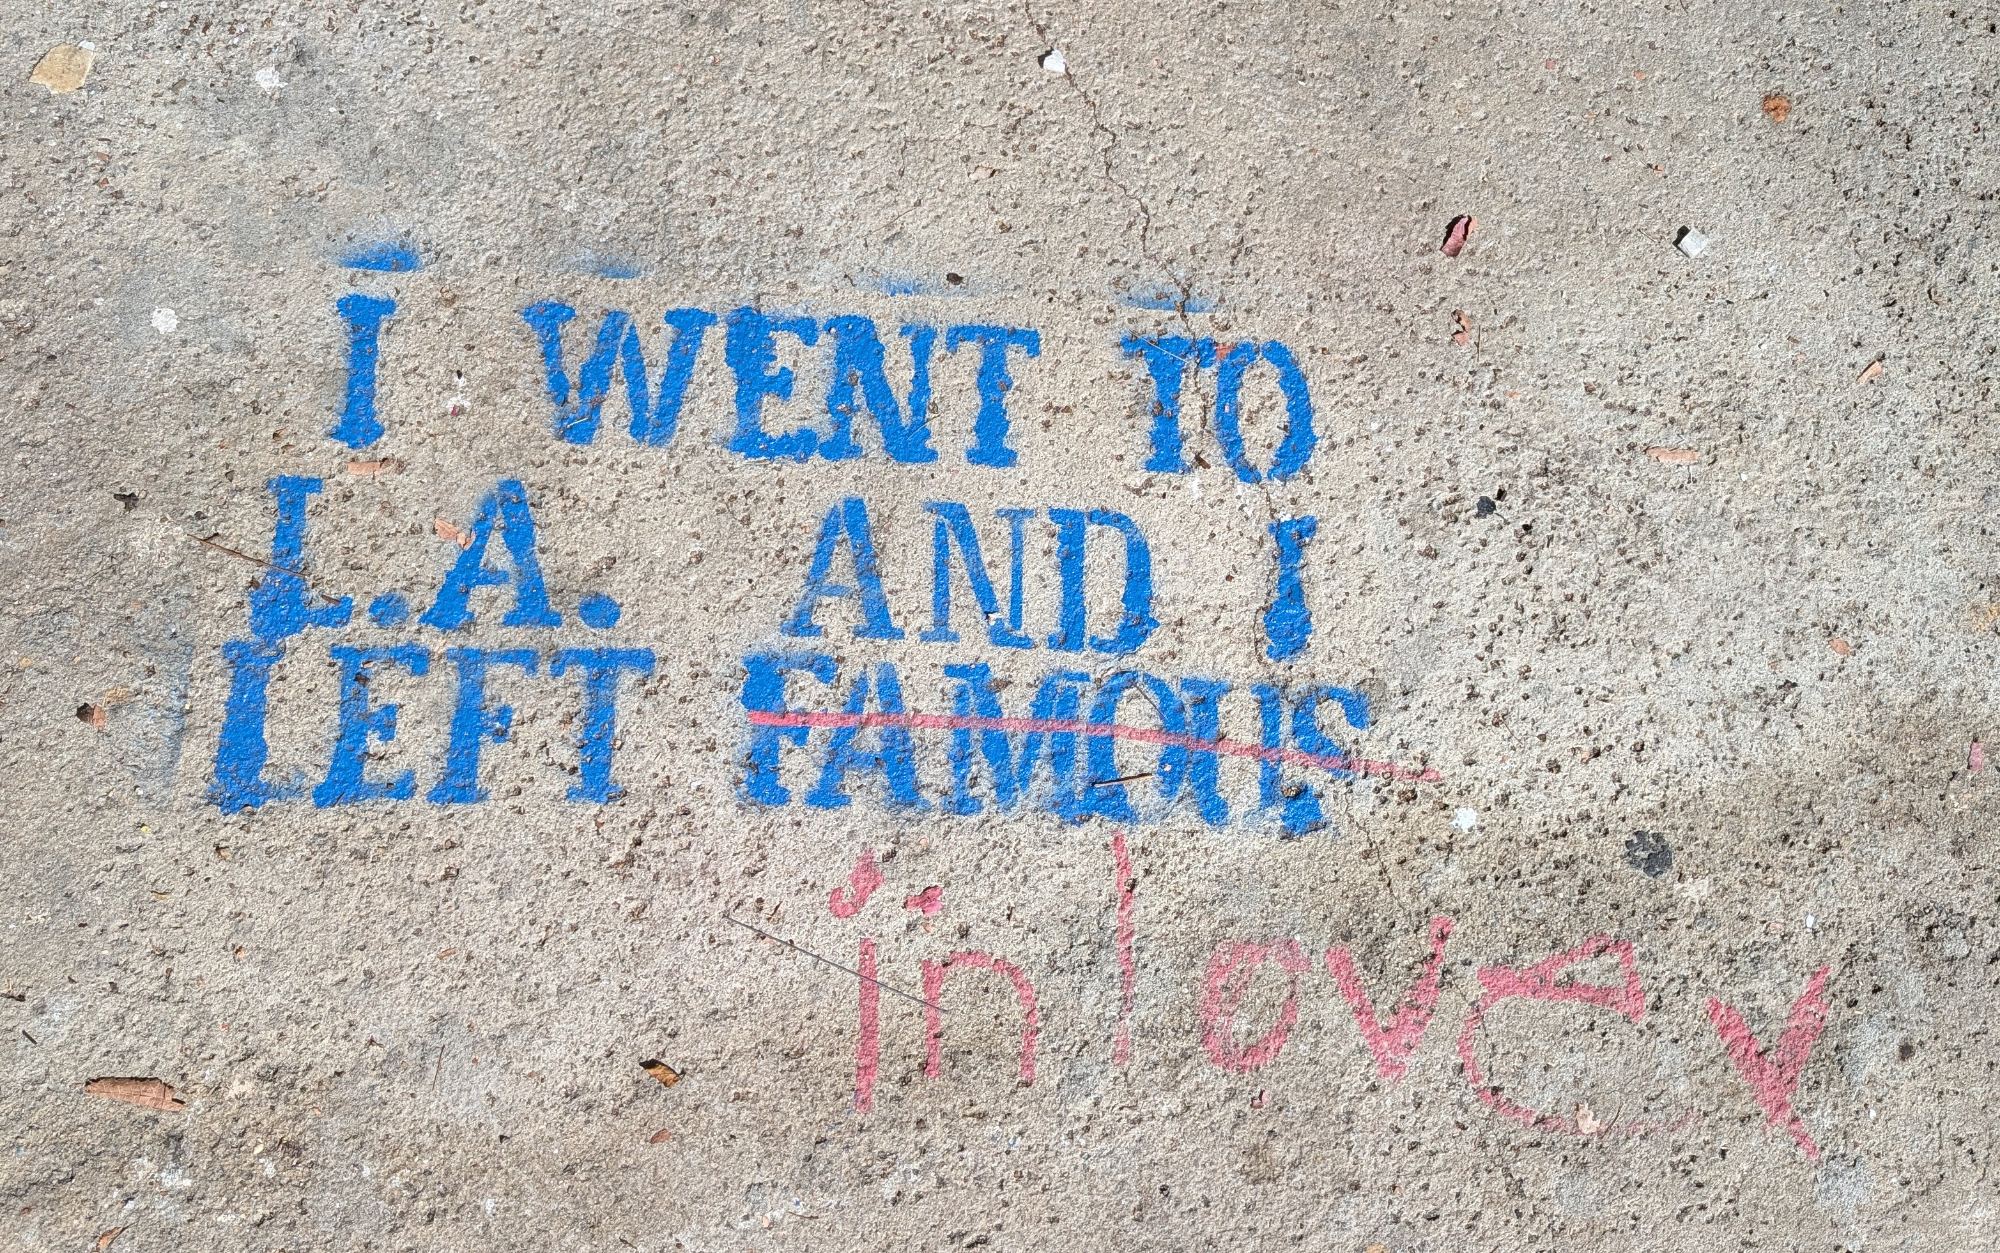 I WENT TO
L.A. AND I
LEFT FAMOUS
in love